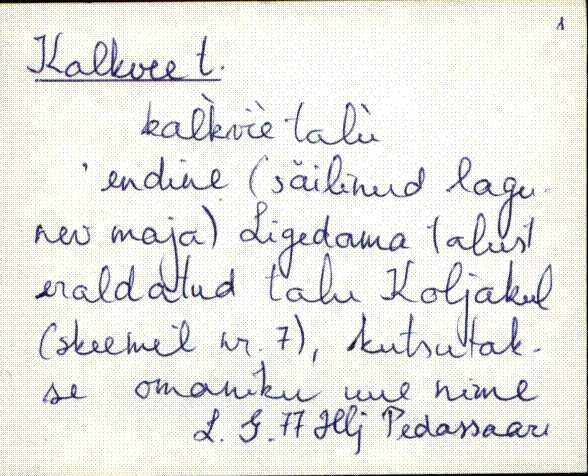 1
Kalkvee t.
kal̀kvìe talù
'endine (säilinud lagu-
nev maja) Ligedama talust
eraldatud talu Koljakul
(skeemil nr. 7), kutsutak-
se omaniku uue nime
L. G. 77 Hlj Pedassaar